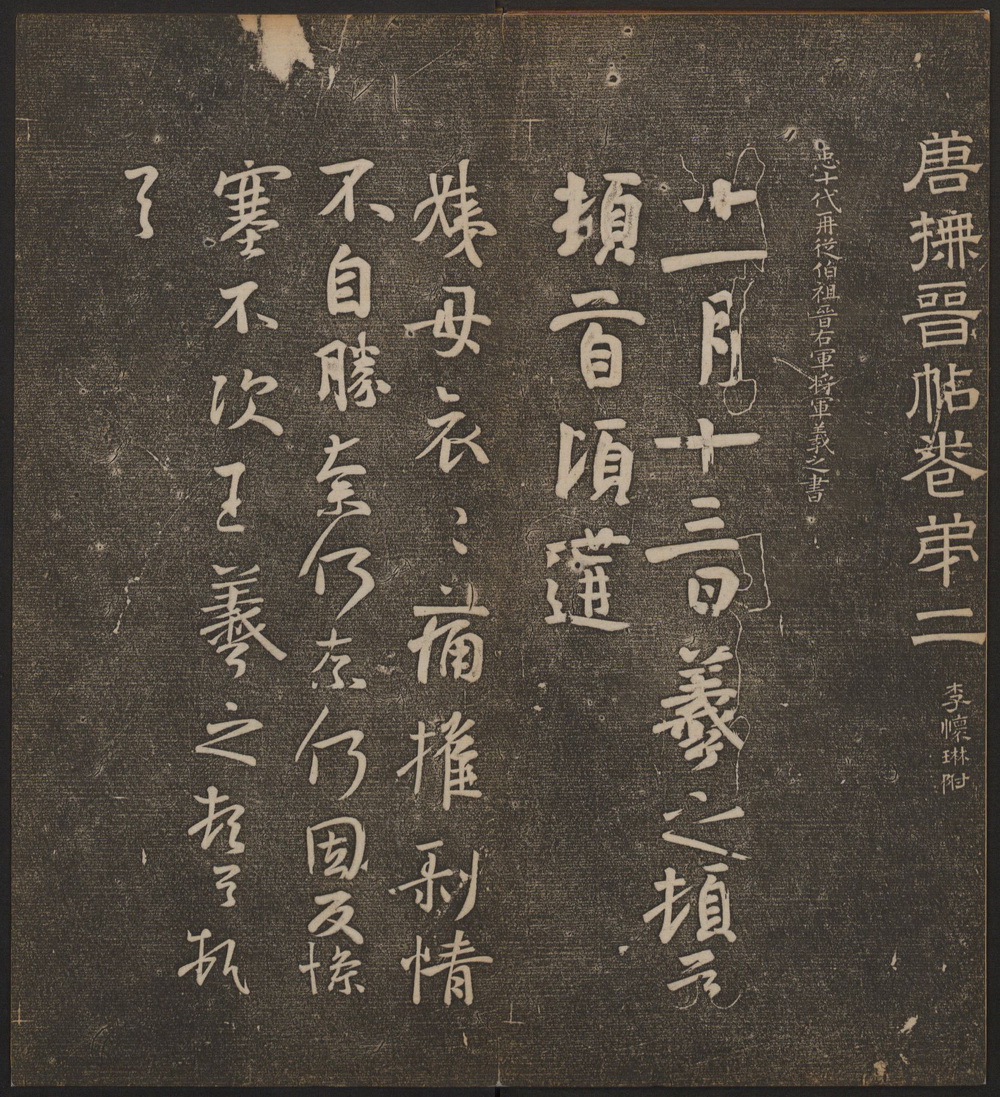 唐撫晉帖卷弟二 李懷琳附
𢘑十代再從伯祖晉右軍將軍羲之書
十一月十三日羲之頓首
頓首頃遘
姨母哀〻痛摧剝情
不自勝奈何奈何因反慘
塞不次王羲之頓首頓
首